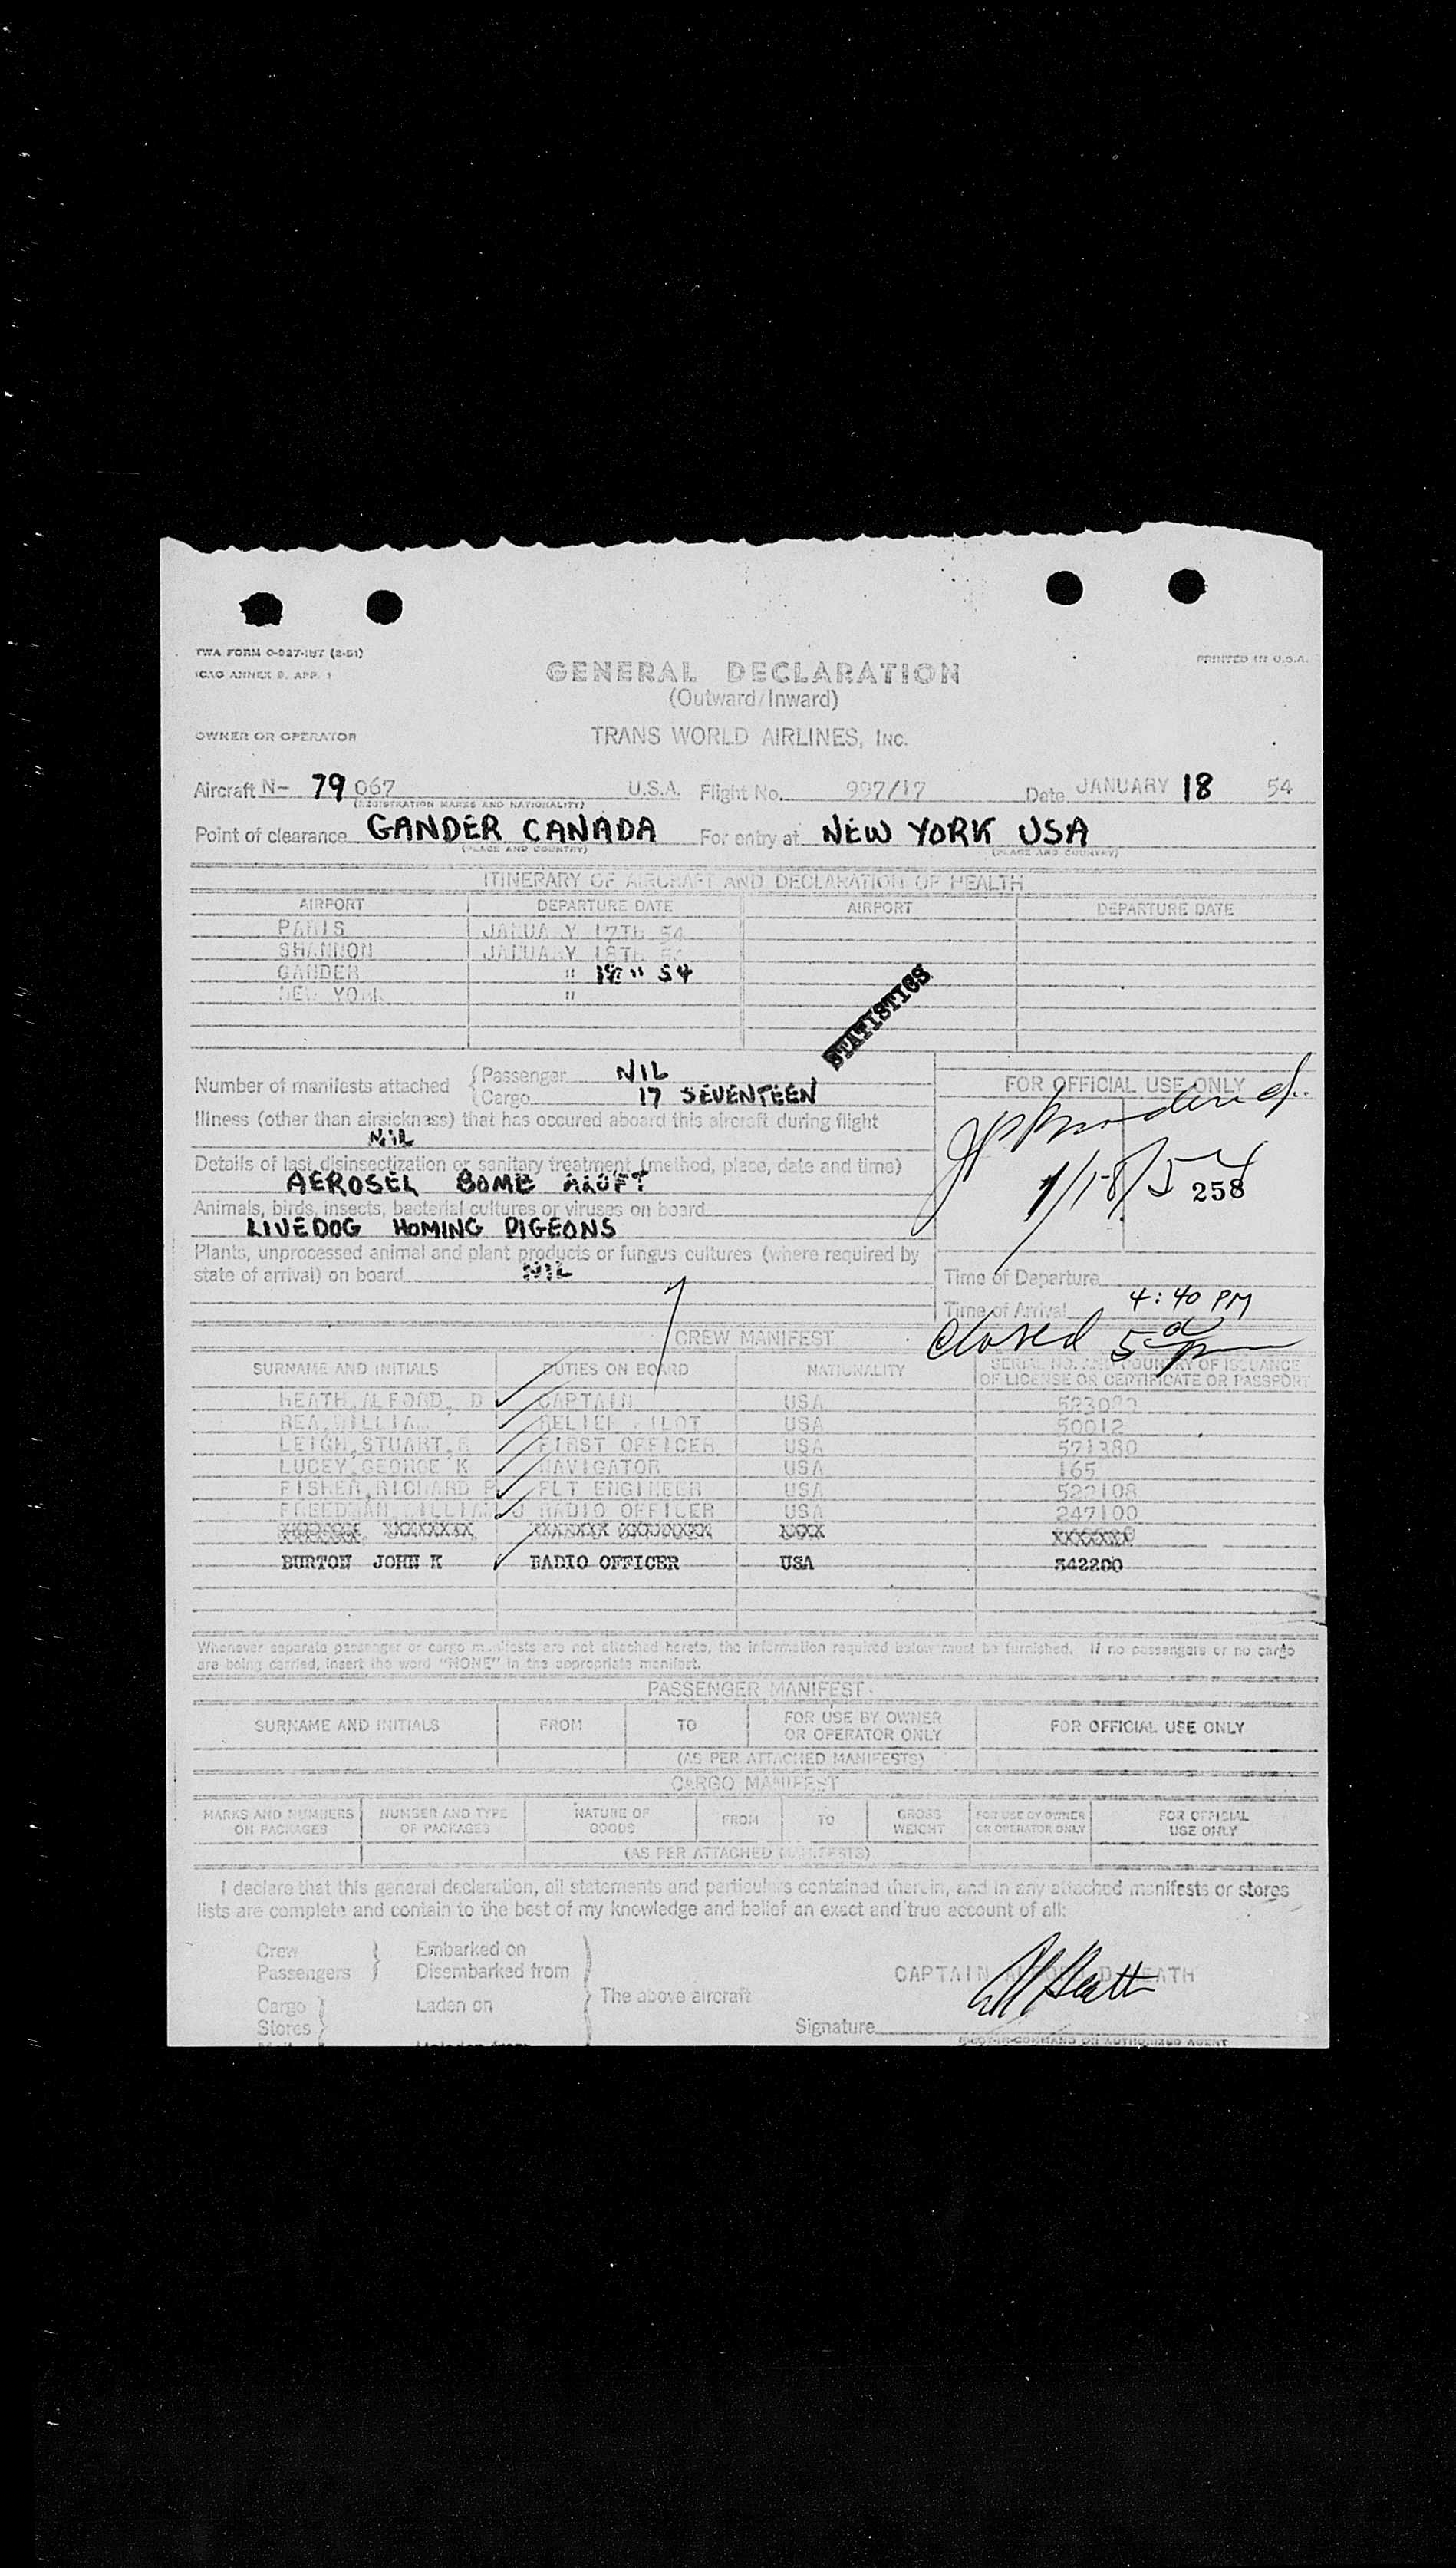 TWA FORM O-927-INT (2-51)
ICAO ANNEX 9, APP. 1
PRINTED IN U.S.A.
GENERAL DECLARATION
(Outward/Inward)
OWNER OR OPERATOR TRANS WORLD AIRLINES, INC.
Aircraft N- 79067 U.S.A. Flight No. 997/17 Date JANUARY 18 54
(REGISTRATION MARKS AND NATIONALITY)
Point of clearance GANDER CANADA For entry at NEW YORK USA
(PLACE AND COUNTRY) (PLACE AND COUNTRY)
ITINERARY OF AIRCRAFT AND DECLARATION OF HEALTH
AIRPORT DEPARTURE DATE AIRPORT DEPARTURE DATE
PARIS JANUARY 17TH 54
SHANNON JANUARY 18TH 54
GANDER " 18 " 54
NEW YORK "
STATISTICS
Number of manifests attached {Passenger NIL
{Cargo 17 SEVENTEEN
Illness (other than airsickness) that has occured aboard this aircraft during flight
NIL
Details of last disinsectization or sanitary treatment (method, place, date and time)
AEROSEL BOMB ALOFT
Animals, birds, insects, bacterial cultures or viruses on board
LIVEDOG HOMING PIGEONS
Plants, unprocessed animal and plant products or fungus cultures (where required by
state of arrival) on board NIL
FOR OFFICIAL USE ONLY
1/18/54
258
Time of Departure
Time of Arrival 4:40 PM
closed 5
CREW MANIFEST
SURNAME AND INITIALS DUTIES ON BOARD NATIONALITY SERIAL NO. AND COUNTRY OF ISSUANCE
OF LICENSE OR CERTIFICATE OR PASSPORT
HEATH, ALFORD, D CAPTAIN USA
REA, WILLIAM RELIEF PILOT USA 50012
LEIGH, STUART, R FIRST OFFICER USA 571380
LUCEY, GEORGE K NAVIGATOR USA 165
FISHER, RICHARD FLT ENGINEER USA 522108
FREEDMAN WILLIAM J RADIO OFFICER USA 247100
BURTON JOHN K RADIO OFFICER USA 342200
Whenever separate passenger or cargo manifests are not attached hereto, the information required below must be furnished. If no passengers or no cargo
are being carried, insert the word "NONE" in the appropriate manifest.
PASSENGER MANIFEST
SURNAME AND INITIALS FROM TO FOR USE BY OWNER
OR OPERATOR ONLY FOR OFFICIAL USE ONLY
(AS PER ATTACHED MANIFESTS)
CARGO MANIFEST
MARKS AND NUMBERS
ON PACKAGES NUMBER AND TYPE
OF PACKAGES NATURE OF
GOODS FROM TO GROSS
WEIGHT FOR USE BY OWNER
OR OPERATOR ONLY FOR OFFICIAL
USE ONLY
(AS PER ATTACHED MANIFESTS)
I declare that this general declaration, all statements and particulars contained therein, and in any attached manifests or stores
lists are complete and contain to the best of my knowledge and belief an exact and true account of all:
Crew Embarked on
Passengers Disembarked from
Cargo Laden on The above aircraft
Stores
CAPTAIN ALFORD D HEATH
Signature
PILOT-IN-COMMAND OR AUTHORIZED AGENT